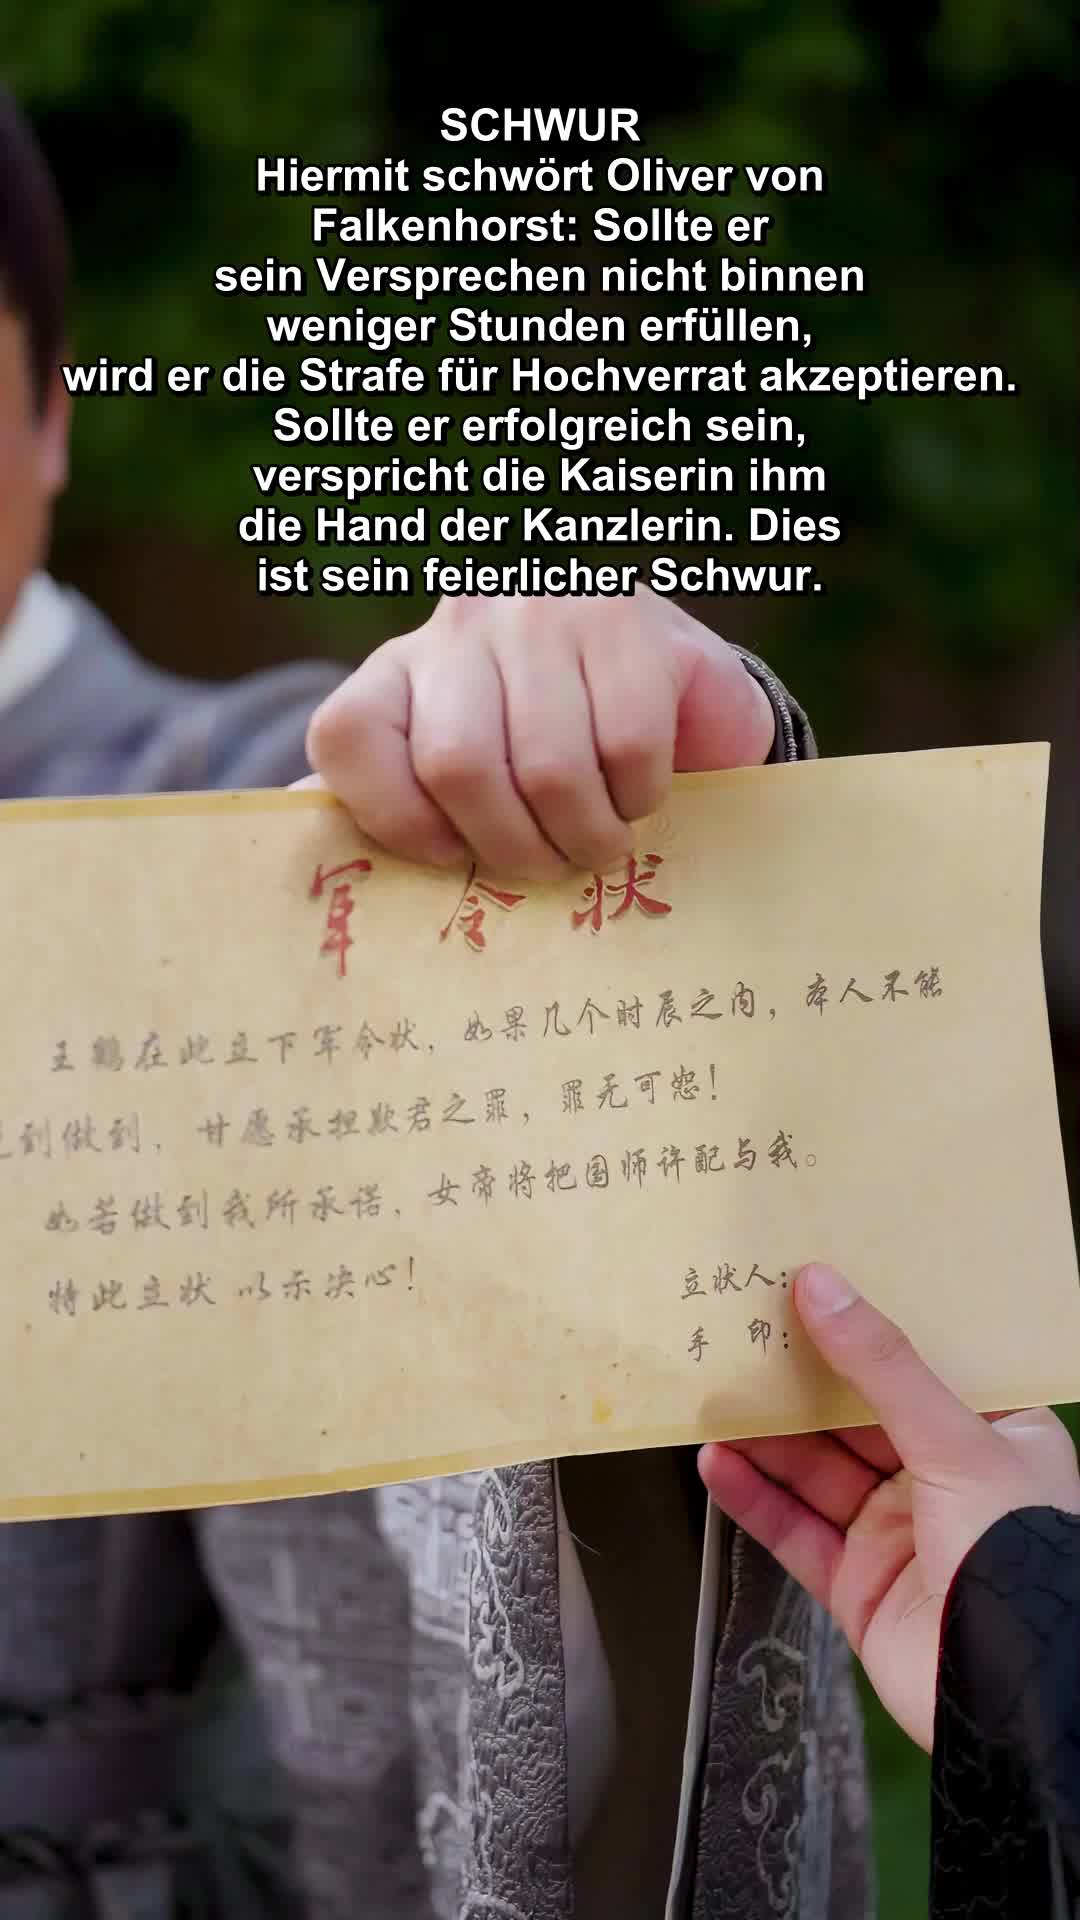 SCHWUR
Hiermit schwört Oliver von
Falkenhorst: Sollte er
sein Versprechen nicht binnen
weniger Stunden erfüllen,
wird er die Strafe für Hochverrat akzeptieren.
Sollte er erfolgreich sein,
verspricht die Kaiserin ihm
die Hand der Kanzlerin. Dies
ist sein feierlicher Schwur.
军令状
王鹤在此立下军令状，如果几个时辰之内，本人不能
到做到，甘愿承担欺君之罪，罪无可恕！
如若做到我所承诺，女帝将把国师许配与我。
特此立状 以示决心！
立状人：
手 印：